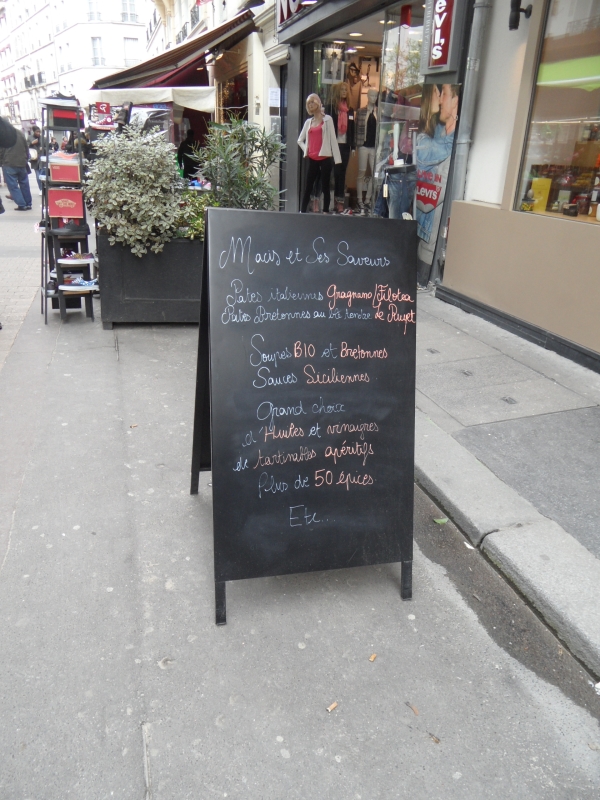 Macis et Ses Saveurs
Pates italiennes Gragnano/Filotea
Pates Bretonnes au blé tendre de Pluyet
Soupes BIO et Bretonnes
Sauces Siciliennes.
Grand choix
d'Huiles et vinaigres
de tartinables apéritifs
Plus de 50 épices.
Etc...
Levi's
LEVI'S